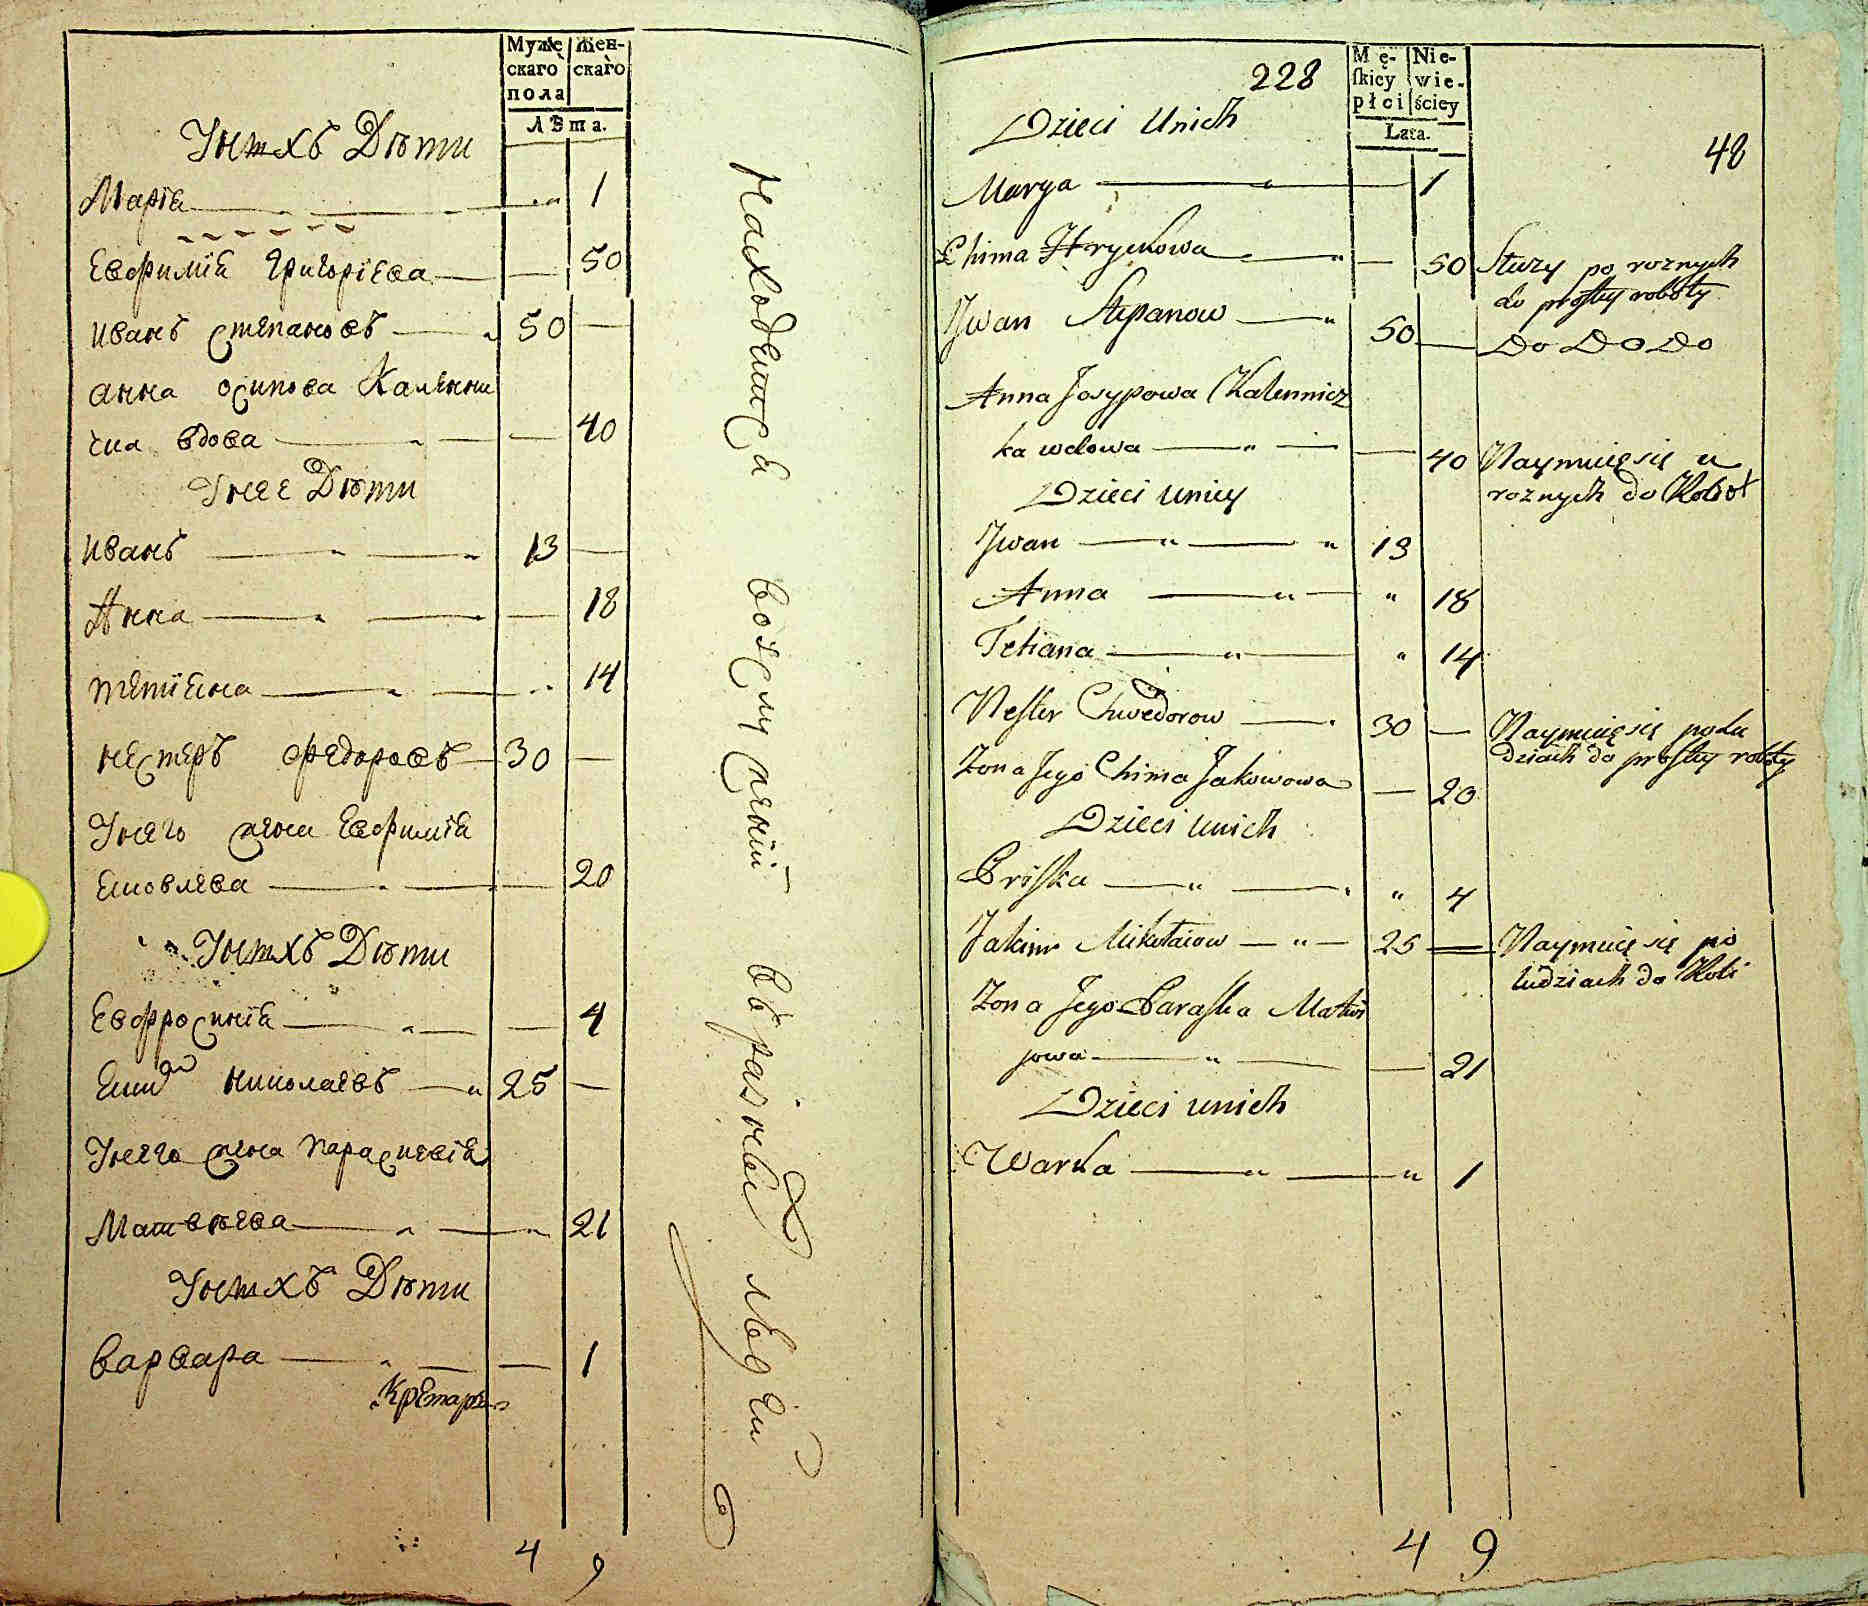 Муже
скаго
пола
Жен-
скаго
Лѣта.
Унихъ Дѣти
Марія 1
Евфимія Григоріева 50
Иванъ Степановъ 50
Анна Осипова Каленни
чиха вдова 40
Унее Дѣти
Иванъ 13
Анна 18
Тетіяна 14
Нестеръ Федоровъ 30
Унего жена Евфимія
Яковлева 20
Унихъ Дѣти
Евфросинія 4
Екимъ Николаевъ 25
Унего жена Параскевія
Матвѣева 21
Унихъ Дѣти
Варвара 1
4 9
Находятся въ разныхъ людей
228
Mę-
skiey
płci
Nie-
wie-
ściey
Lata.
48
Dzieci Unich
Marya 1
Chima Hryckowa 50 Służy po roznych
do prostey roboty
Jwan Stepanow 50 Do Do Do
Anna Josypowa Kalennicz
ka wdowa 40 Naymuię się u
roznych do Robot
Dzieci uniey
Jwan 13
Anna 18
Tetiana 14
Nester Chwedorow 30 Naymuię się polu
dziach do prostey roboty
Zona Jego Chima Jakowowa 20
Dzieci unich
Priska 4
Jakim Mikołaiow 25 Naymuię się po
ludziach do Robo
Zona Jego Paraska Matwi
jowa 21
Dzieci unich
Warka 1
4 9